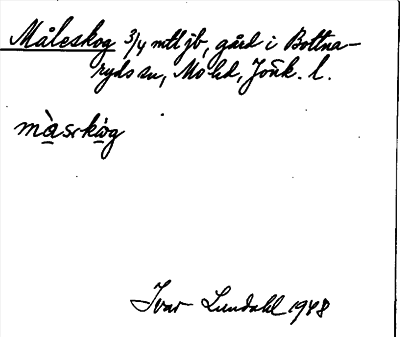 Måleskog 3/4 mtl jb, gård i Bottna-
ryds sn, Mo hd, Jönk. l.
màsrkòg
Ivar Lundahl 1948